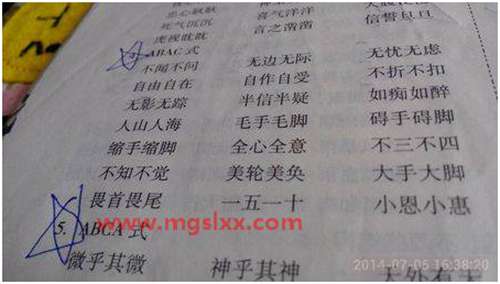 忠心耿耿
死气沉沉 喜气洋洋
虎视眈眈 言之凿凿 信誓旦旦
ABAC 式
不闻不问 无边无际 无忧无虑
自由自在 自作自受 不折不扣
无影无踪 半信半疑 如痴如醉
人山人海 毛手毛脚 碍手碍脚
缩手缩脚 全心全意 不三不四
不知不觉 美轮美奂 大手大脚
畏首畏尾 一五一十 小恩小惠
www.mgslxx.com
5. ABCA 式
微乎其微 神乎其神 天外有天
2014-07-05 16:38:20